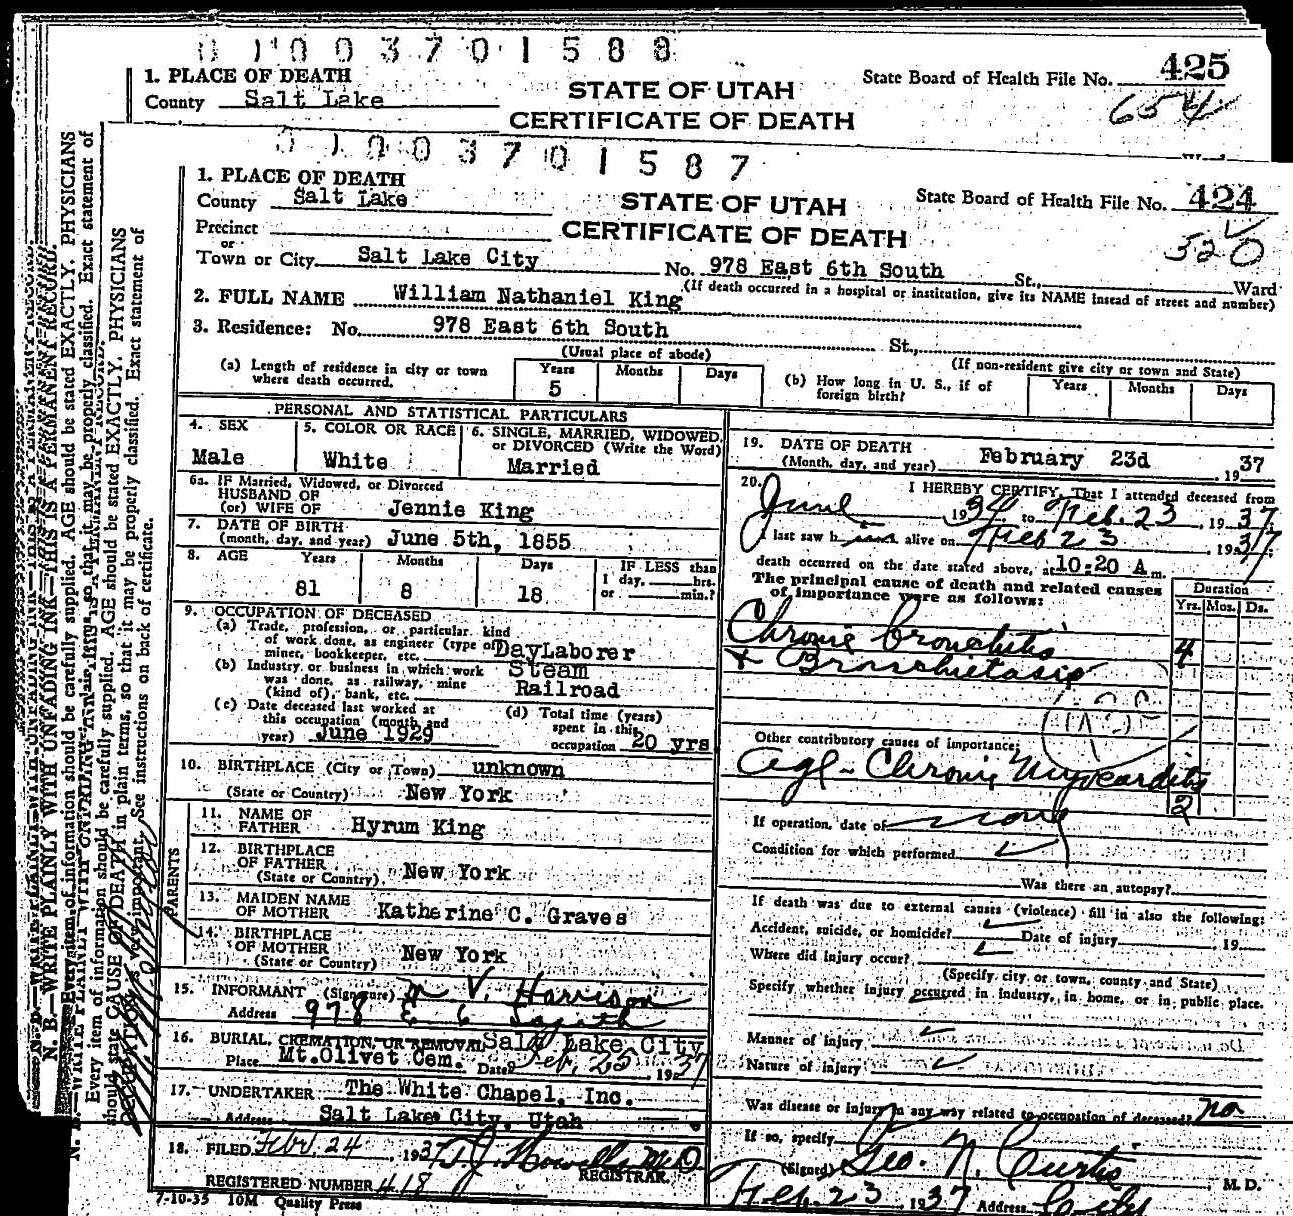 0 1 0 0 3 7 0 1 5 8 8
1. PLACE OF DEATH
County Salt Lake
STATE OF UTAH
CERTIFICATE OF DEATH
State Board of Health File No. 425
654
0 1 0 0 3 7 0 1 5 8 7
1. PLACE OF DEATH
County Salt Lake
STATE OF UTAH
CERTIFICATE OF DEATH
State Board of Health File No. 424
520
Precinct
or
Town or City Salt Lake City No. 978 East 6th South St., Ward
(If death occurred in a hospital or institution, give its NAME instead of street and number)
2. FULL NAME William Nathaniel King
3. Residence: No. 978 East 6th South St.,
(Usual place of abode) (If non-resident give city or town and State)
(a) Length of residence in city or town where death occurred. Years 5 Months Days
(b) How long in U. S., if of foreign birth? Years Months Days
PERSONAL AND STATISTICAL PARTICULARS
4. SEX Male
5. COLOR OR RACE White
6. SINGLE, MARRIED, WIDOWED, or DIVORCED (Write the Word) Married
6a. IF Married, Widowed, or Divorced
HUSBAND OF
(or) WIFE OF Jennie King
7. DATE OF BIRTH
(month, day, and year) June 5th, 1855
8. AGE Years Months Days IF LESS than
81 8 18 1 day, hrs. or min.?
9. OCCUPATION OF DECEASED
(a) Trade, profession, or particular kind
of work done, as engineer (type of
miner, bookkeeper, etc. DayLaborer
(b) Industry or business in which work
was done, as railway, mine
(kind of), bank, etc. Steam Railroad
(c) Date deceased last worked at
this occupation (month and
year) June 1929
(d) Total time (years)
spent in this
occupation 20 yrs
10. BIRTHPLACE (City or Town) unknown
(State or Country) New York
PARENTS
11. NAME OF FATHER Hyrum King
12. BIRTHPLACE OF FATHER
(State or Country) New York
13. MAIDEN NAME OF MOTHER Katherine C. Graves
14. BIRTHPLACE OF MOTHER
(State or Country) New York
15. INFORMANT (Signature) V. Harrison
Address 978 E 6 South
16. BURIAL, CREMATION, OR REMOVAL Salt Lake City
Place Mt.Olivet Cem. Date Feb. 25, 1937
17. UNDERTAKER The White Chapel, Inc.
Address Salt Lake City, Utah
18. FILED Febr. 24, 1937 Howells M.D.
REGISTRAR.
REGISTERED NUMBER 418
7-10-35 10M Quality Press
19. DATE OF DEATH
(Month, day, and year) February 23d, 1937
20. I HEREBY CERTIFY, That I attended deceased from
June 1934 to Feb. 23, 1937
I last saw h alive on Feb 23, 1937;
death occurred on the date stated above, at 10:20 A m.
The principal cause of death and related causes
of importance were as follows:
Duration
Yrs. Mos. Ds.
Chronic bronchitis 4
+ Bronchietasis
Other contributory causes of importance:
Age - Chronic Myocarditis
2
If operation, date of none
Condition for which performed
Was there an autopsy?
If death was due to external causes (violence) fill in also the following:
Accident, suicide, or homicide? Date of injury 19
Where did injury occur?
(Specify city or town, county and State)
Specify whether injury occurred in industry, in home, or in public place.
Manner of injury
Nature of injury
Was disease or injury in any way related to occupation of deceased? no
If so, specify
(Signed) Geo. N. Curtis, M. D.
Feb. 23, 1937 Address City
N. B.—WRITE PLAINLY WITH UNFADING INK—THIS IS A PERMANENT RECORD.
Every item of information should be carefully supplied. AGE should be stated EXACTLY. PHYSICIANS
should state CAUSE OF DEATH in plain terms, so that it may be properly classified. Exact statement of
OCCUPATION is very important. See instructions on back of certificate.